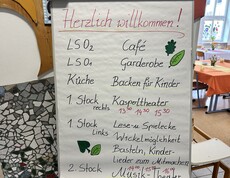 Herzlich willkommen!
LSO₂ Café
LSO₄ Garderobe
Küche Backen für Kinder
1 Stock rechts Kasperltheater
13:30 14:30 15:30
1 Stock Links Lese- u Spielecke
Wickelmöglichkeit
Basteln, Kinder-
Lieder zum Mitmachen
2 Stock Musik-